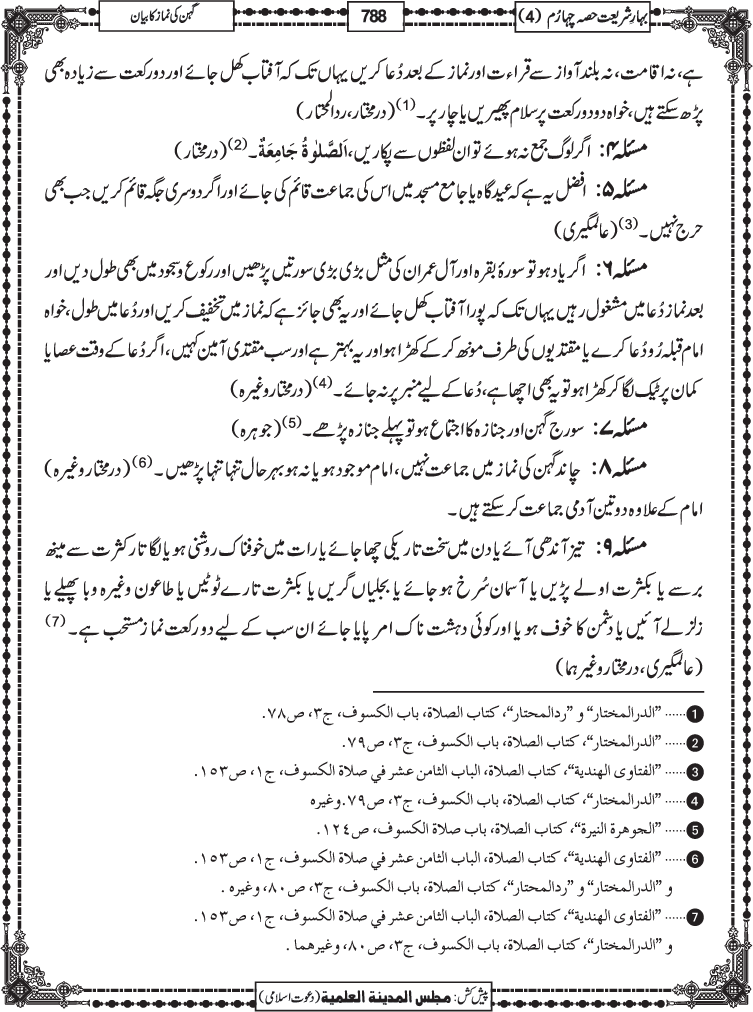 بہارِ شریعت حصہ چہارم (4)
788
گہن کی نماز کا بیان
ہے، نہ اقامت، نہ بلند آواز سے قراءت اور نماز کے بعد دُعا کریں یہاں تک کہ آفتاب کھل جائے اور دو رکعت سے زیادہ بھی
پڑھ سکتے ہیں، خواہ دو دو رکعت پر سلام پھیریں یا چار پر۔ (1) (درمختار، ردالمحتار)
مسئلہ ۴: اگر لوگ جمع نہ ہوئے تو ان لفظوں سے پکاریں، اَلصَّلٰوۃُ جَامِعَۃٌ۔ (2) (درمختار)
مسئلہ ۵: افضل یہ ہے کہ عید گاہ یا جامع مسجد میں اس کی جماعت قائم کی جائے اور اگر دوسری جگہ قائم کریں جب بھی
حرج نہیں۔ (3) (عالمگیری)
مسئلہ ۶: اگر یاد ہو تو سورۂ بقرہ اور آل عمران کی مثل بڑی بڑی سورتیں پڑھیں اور رکوع و سجود میں بھی طول دیں اور
بعد نماز دُعا میں مشغول رہیں یہاں تک کہ پورا آفتاب کھل جائے اور یہ بھی جائز ہے کہ نماز میں تخفیف کریں اور دُعا میں طول، خواہ
امام قبلہ رُو دُعا کرے یا مقتدیوں کی طرف مونھ کر کے کھڑا ہو اور یہ بہتر ہے اور سب مقتدی آمین کہیں، اگر دُعا کے وقت عصا یا
کمان پر ٹیک لگا کر کھڑا ہو تو یہ بھی اچھا ہے، دُعا کے لیے منبر پر نہ جائے۔ (4) (درمختار وغیرہ)
مسئلہ ۷: سورج گہن اور جنازہ کا اجتماع ہو تو پہلے جنازہ پڑھے۔ (5) (جوہرہ)
مسئلہ ۸: چاند گہن کی نماز میں جماعت نہیں، امام موجود ہو یا نہ ہو بہرحال تنہا تنہا پڑھیں۔ (6) (درمختار وغیرہ)
امام کے علاوہ دو تین آدمی جماعت کر سکتے ہیں۔
مسئلہ ۹: تیز آندھی آئے یا دن میں سخت تاریکی چھا جائے یا رات میں خوفناک روشنی ہو یا لگاتار کثرت سے مینھ
برسے یا بکثرت اولے پڑیں یا آسمان سُرخ ہو جائے یا بجلیاں گریں یا بکثرت تارے ٹوٹیں یا طاعون وغیرہ وبا پھیلے یا
زلزلے آئیں یا دشمن کا خوف ہو یا اور کوئی دہشت ناک امر پایا جائے ان سب کے لیے دو رکعت نماز مستحب ہے۔ (7)
(عالمگیری، درمختار وغیرہما)
1 ...... "الدرالمختار" و "ردالمحتار"، کتاب الصلاة، باب الکسوف، ج٣، ص٧٨.
2 ...... "الدرالمختار"، کتاب الصلاة، باب الکسوف، ج٣، ص٧٩.
3 ...... "الفتاوی الهندیة"، کتاب الصلاة، الباب الثامن عشر في صلاة الکسوف، ج١، ص١٥٣.
4 ...... "الدرالمختار"، کتاب الصلاة، باب الکسوف، ج٣، ص٧٩. وغیرہ
5 ...... "الجوهرة النیرة"، کتاب الصلاة، باب صلاة الکسوف، ص١٢٤.
6 ...... "الفتاوی الهندیة"، کتاب الصلاة، الباب الثامن عشر في صلاة الکسوف، ج١، ص١٥٣.
و "الدرالمختار" و "ردالمحتار"، کتاب الصلاة، باب الکسوف، ج٣، ص٨٠، وغیرہ .
7 ...... "الفتاوی الهندیة"، کتاب الصلاة، الباب الثامن عشر في صلاة الکسوف، ج١، ص١٥٣.
و "الدرالمختار"، کتاب الصلاة، باب الکسوف، ج٣، ص٨٠، وغیرهما .
پیش کش: مجلس المدینة العلمیة (دعوت اسلامی)